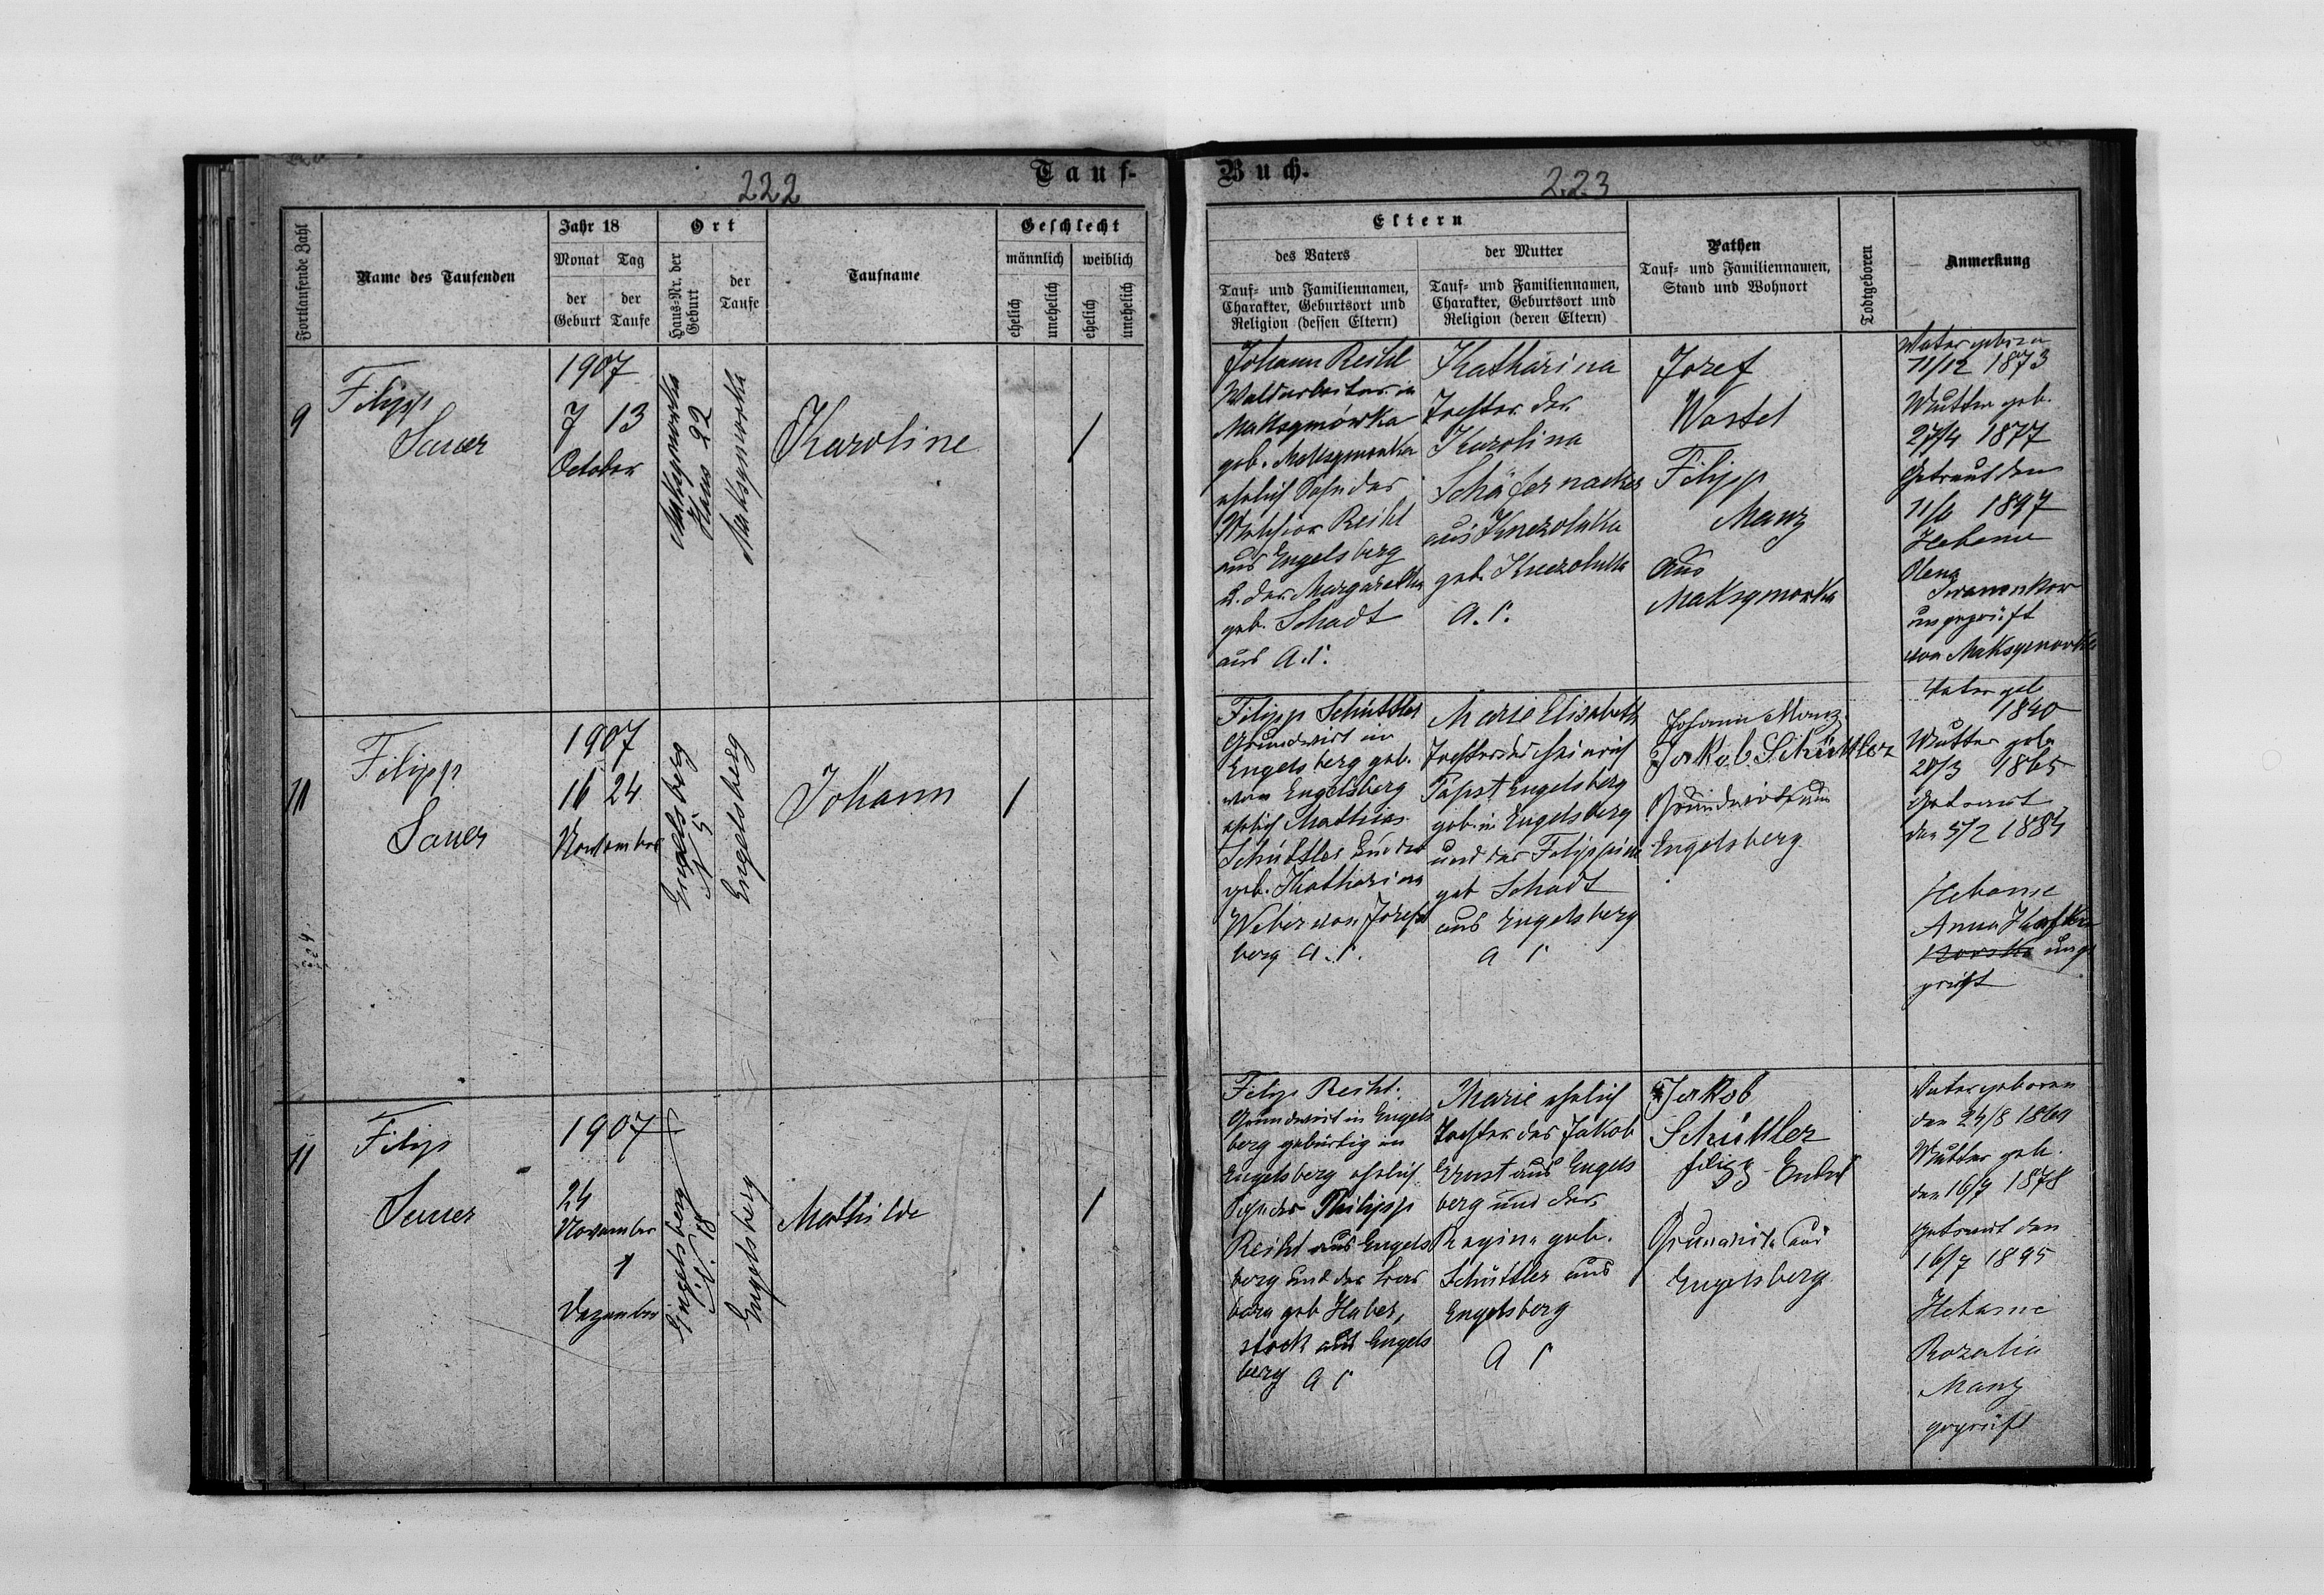 222
Tauf-
Fortlaufende Zahl
Name des Taufenden
Jahr 18
Monat Tag
der Geburt
der Taufe
Ort
Haus-Nr. der Geburt
der Taufe
Taufname
Geschlecht
männlich
weiblich
ehelich
unehelich
ehelich
unehelich
9
Filipp
Sauer
1907
7 13
October
Maksymowka
Haus 22
Maksymowka
Karoline
/
Filipp
Sauer
1907
16 24
November
Engelsberg
N 5
Engelsberg
Johann
/
11
Filip
Sauer
1907
24
November
1
Dezember
Engelsberg
N. 18
Engelsberg
Mathilde
/
Buch.
223
Eltern
des Vaters
Tauf- und Familiennamen,
Charakter, Geburtsort und
Religion (dessen Eltern)
der Mutter
Tauf- und Familiennamen,
Charakter, Geburtsort und
Religion (deren Eltern)
Pathen
Tauf- und Familiennamen,
Stand und Wohnort
Todtgeboren
Anmerkung
Johann Reihl
Waldarbeiter in
Maksymówka
geb. Maksymowka
ehelich Sohn des
Melchior Reihl
aus Engelsberg
u. der Margaretha
geb. Schadt
aus A.C.
Katharina
Tochter der
Karolina
Schäfernacker
aus Kniezoluka
geb. Kniezoluka
A.C.
Jozef
Wastel
Filipp
Manz
aus
Maksymowka
Vater geboren
11/12 1873
Mutter geb.
27/4 1877
Getraut den
1897
Hebame
Olena
Iwanonkow
ungeprüft
von Maksymowka
Filipp Schüttler
Grundwirt in
Engelsberg geb.
von Engelsberg
ehelich Mathias
Schüttler und der
geb. Katharina
Weber von Josefs
berg A.C.
Marie Elisabeth
Tochter des Heinrich
Pabst Engelsberg
geb. in Engelsberg
und der Filippine
geb Schadt
aus Engelsberg
A C
Johann Manz
Jakob Schüttler
Grundwirte aus
Engelsberg
Vater geb
1840
Mutter geb
20/3 1865
Getraut
den 5/2 1884
Hebame
Anna
unge
prüft
Filip Reihl.
Grundwirt in Engels
berg gebürtig in
Engelsberg ehelich
Sohn des Philipp
Reihl aus Engels
berg und der Bar
bara geb Haber,
stock aus Engels
berg A C
Marie ehelich
Tochter des Jakob
Ernst aus Engels
berg und der
Regina geb.
Schüttler aus
Engelsberg
A C
Jakob
Schüttler
Grundwirte aus
Engelsberg
Vater geboren
den 24/8 1869
Mutter geb.
den 16/7 1878
Getraut den
16/7 1895
Hebame
Rozalia
Manz
geprüft